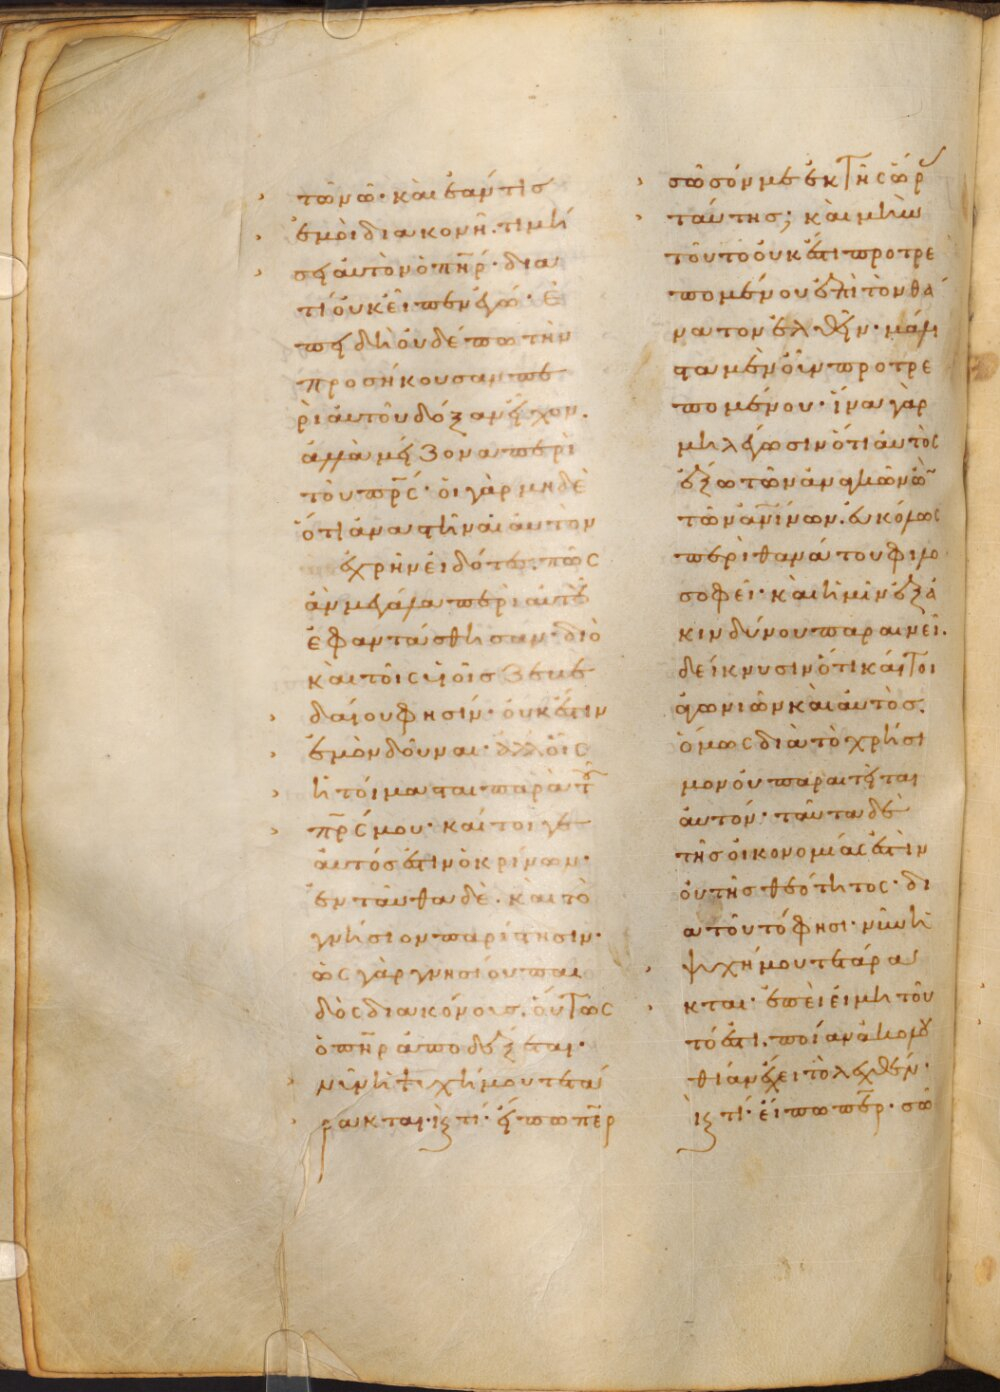 τῶν ὦ· καὶ ἐάν τις
ἐμοὶ διακονῇ. τιμή
σει αὐτὸν ὁ πηρ· δια
τί οὐκ εἶπεν ἐγώ· ἐ
πειδὴ οὐδέπω τὴν
προσήκουσαν πε
ρὶ αὐτοῦ δόξαν εἶχον.
ἀλλὰ μείζονα περὶ
τοῦ πρς· οἱ γὰρ μηδὲ
ὅτι ἀναστῆναι αὐτὸν
ἐχρῆν εἰδότες. πῶς
ἂν μεγάλα περὶ αὐτοῦ
ἐφαντάσθησαν· διὸ
καὶ τοῖς υἱοῖς Ζεβε
δαίου φησίν· οὐκ ἔστιν
ἐμὸν δοῦναι· ἀλλ' οἷς
ἡτοίμασται παρὰ τοῦ
πρς μου· καίτοι γε
αὐτός ἐστιν ὁ κρίνων·
ἐνταῦθα δὲ· καὶ τὸ
γνήσιον παρίστησιν·
ὡς γὰρ γνησίου παι
δὸς διακόνους. οὕτως
ὁ πηρ ἀποδέξεται·
νῦν ἡ ψυχή μου τετά
ρακται· κ τί· εἴπω περ
σῶσόν με ἐκ τῆς ὥρ
ταύτης; καὶ μὴν
τοῦτο οὐκ ἔστι προτρε
πομένου ἐπὶ τὸν θά
νατον ἐλθεῖν· μάλι
στα μὲν οὖν προτρε
πομένου· ἵνα γὰρ
μὴ λέγωσιν ὅτι αὐτὸς
ἔξω τῶν ἀλγηδόνων ὢν
τῶν ἀνίνων. εὐκόλως
περὶ θανάτου φιλο
σοφεῖ· καὶ ἡμῖν ἔξω
κινδύνου παραινεῖ.
δείκνυσιν ὅτι καίτοι
ἀγωνιῶν καὶ αὐτὸς.
ὅμως διὰ τὸ χρήσι
μον οὐ παραιτεῖται
αὐτόν· ταῦτα δὲ
τῆς οἰκονομίας ἐστὶν
οὐ τῆς θεότητος· δι
α τοῦτό φησι· νῦν ἡ
ψυχή μου τετάρα
κται· ἐπεὶ εἰ μὴ τοῦ
τό ἐστι. ποίαν ἀκολου
θίαν ἔχει τὸ λεχθέν·
κ τί· εἴπω περ· σῶ